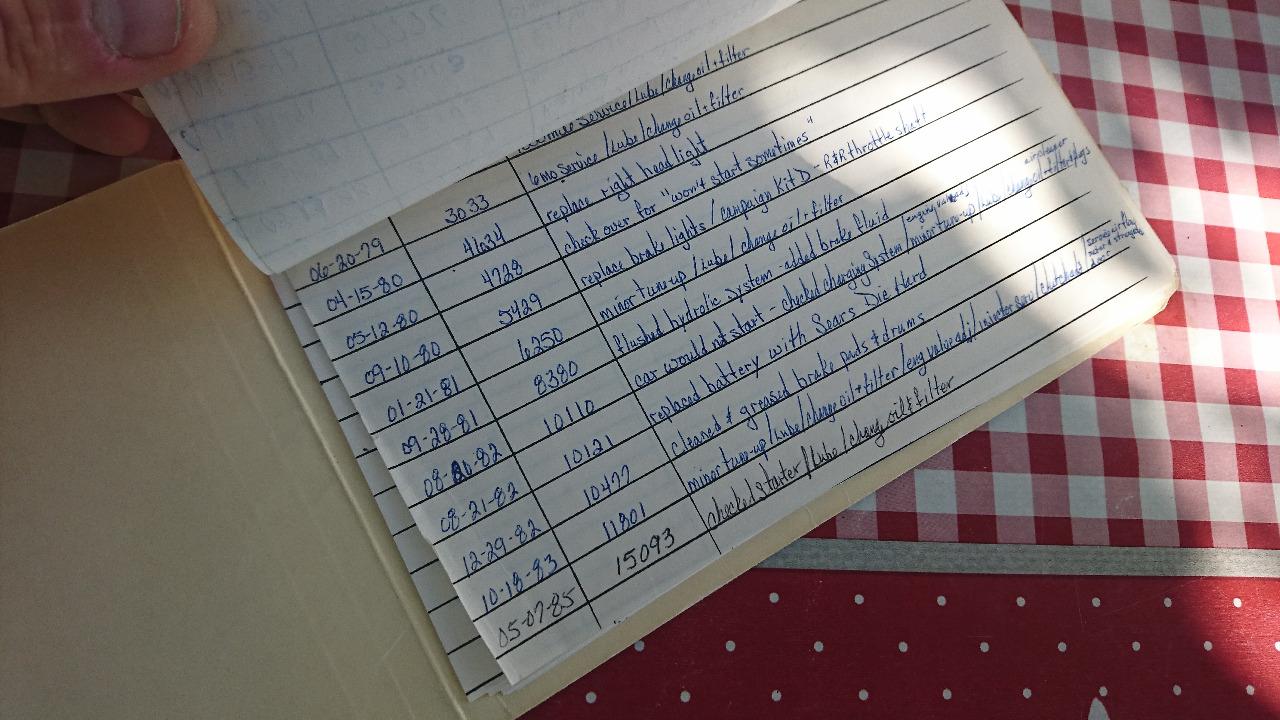 service/Lube/change oil+filter
06-20-79 3033 6mo service/Lube/change oil+filter
04-15-80 4634 replace right headlight
05-12-80 4728 check over for "won't start sometimes"
09-10-80 5429 replace brake lights/campaign Kit D - R&R throttle shaft
01-21-81 6250 minor tune-up/Lube/change oil + filter
09-28-81 8380 flushed hydrolic system - added brake fluid
08-20-82 10110 car would not start - checked charging system/minor tune-up/Lube/change oil + filter
08-21-82 10121 replaced battery with Sears Die Hard
12-29-82 10477 cleaned & greased brake pads & drums
10-18-83 11801 minor tune-up/Lube/change oil + filter/eng valve adj/injector serv
05-07-85 15093 checked starter/Lube/change oil & filter